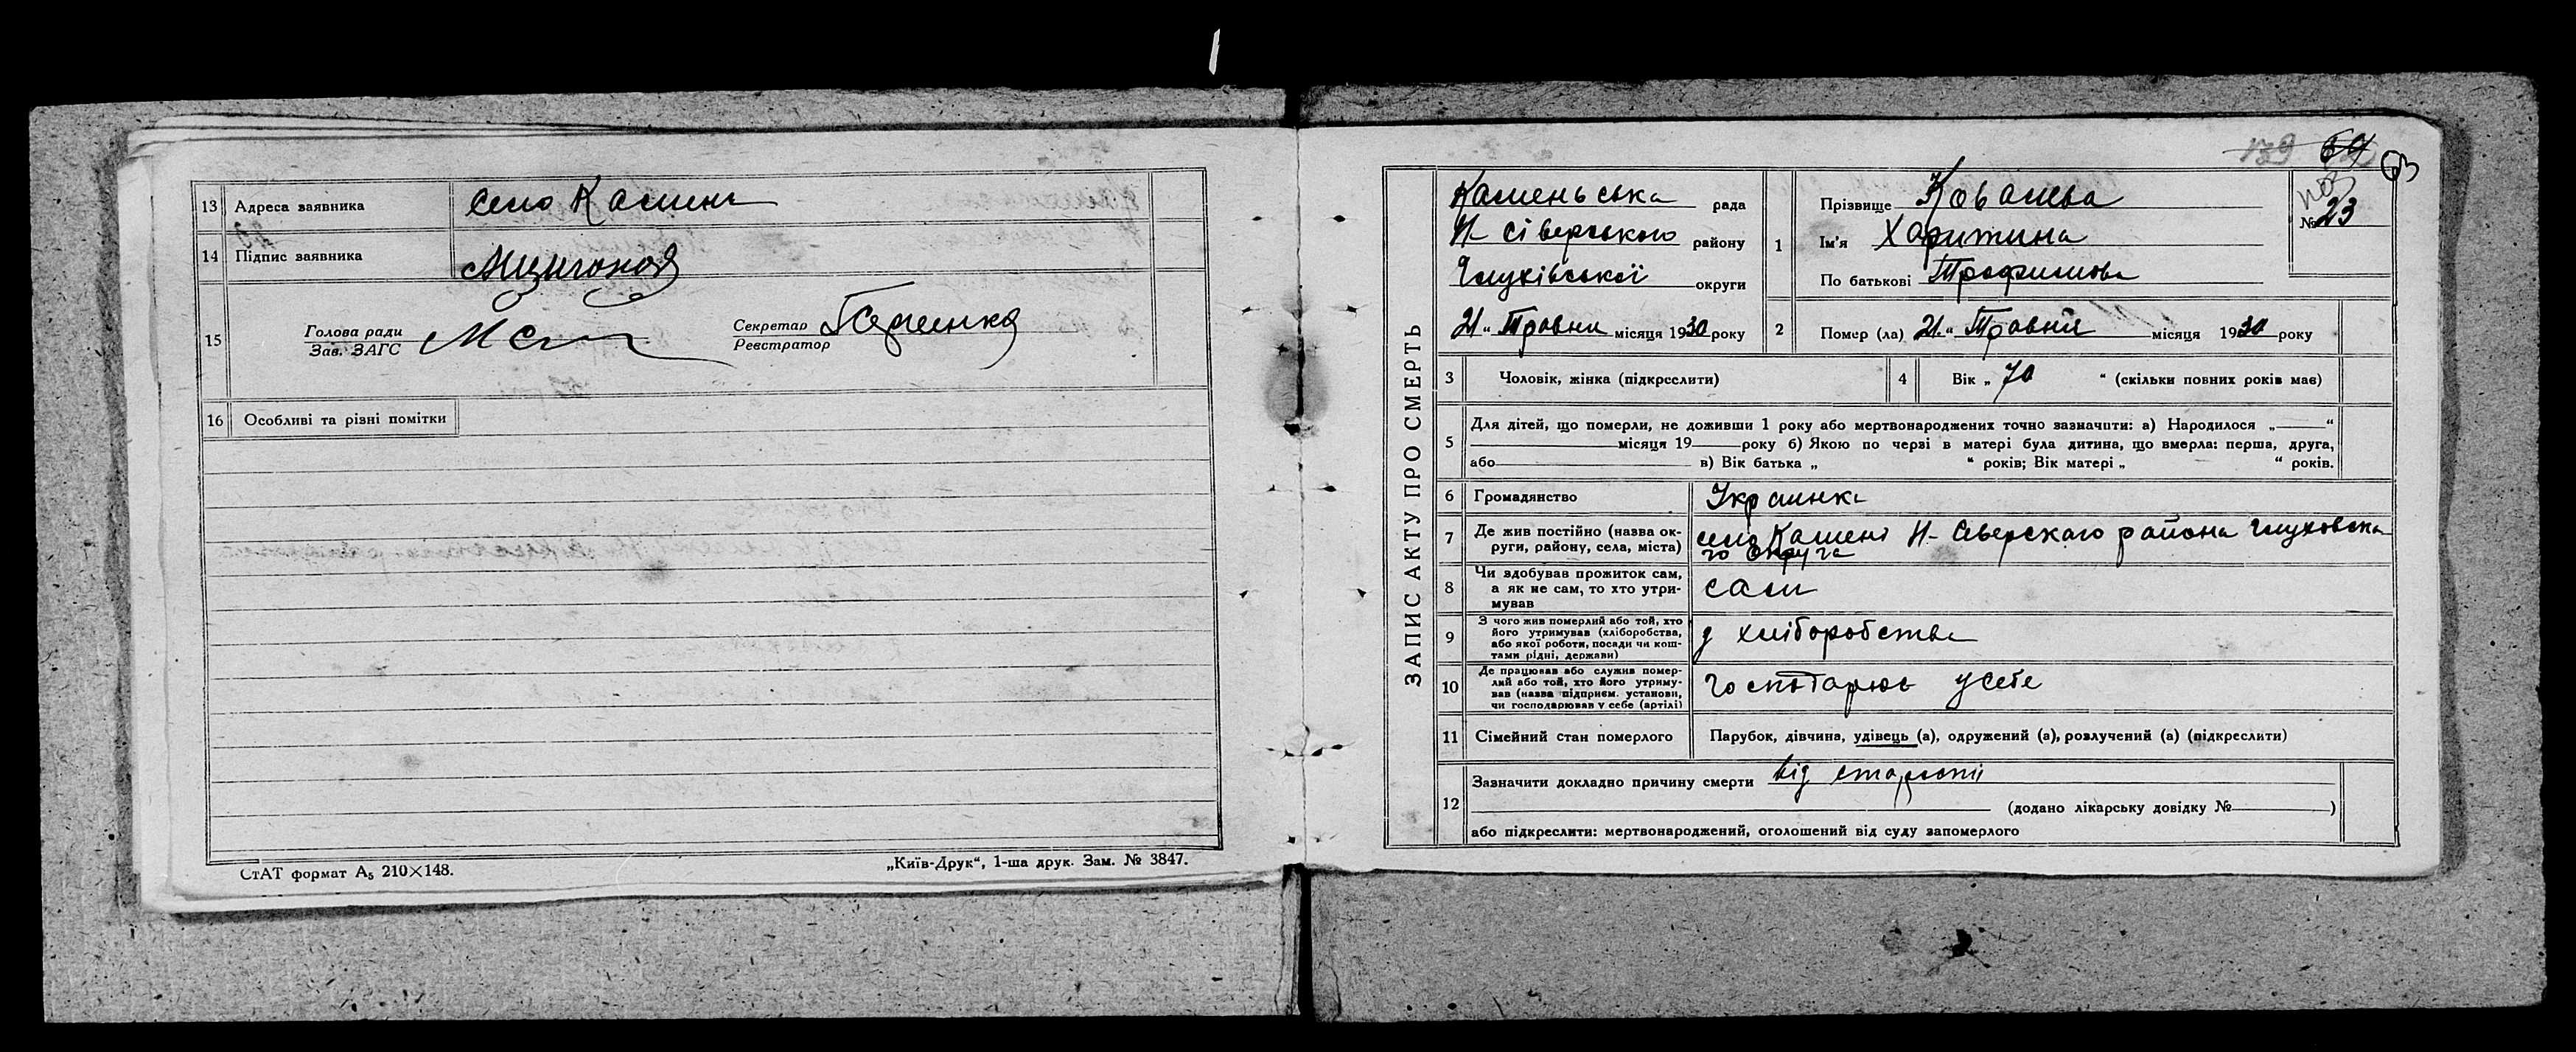 13 Адреса заявника село Камень
14 Підпис заявника
15 Голова ради
Зав. ЗАГС
Секретар
Реєстратор
16 Особливі та різні помітки
СтАТ формат А5 210×148.
„Київ-Друк“, 1-ша друк. Зам. № 3847.
139 64 63
ЗАПИС АКТУ ПРО СМЕРТЬ
Каменьська рада
Н-Сіверського району
Глухівської округи
21 “ Травня місяця 1930 року
1 Прізвище Ковалева
Ім'я Харитина
По батькові Трофимовна
№ 23
2 Помер (ла) 21 “ Травня місяця 1930 року
3 Чоловік, жінка (підкреслити)
4 Вік „ 70 “ (скільки повних років має)
5 Для дітей, що померли, не доживши 1 року або мертвонароджених точно зазначити: а) Народилося „ “
місяця 19 року б) Якою по черзі в матері була дитина, що вмерла: перша, друга,
або в) Вік батька „ “ років; Вік матері „ “ років.
6 Громадянство Украинка
7 Де жив постійно (назва ок-
руги, району, села, міста) село Камень Н-Северскаго района Глуховска
го округа
8 Чи здобував прожиток сам,
а як не сам, то хто утри-
мував сам
9 З чого жив померлий або той, хто
його утримував (хліборобства,
або якої роботи, посади чи кош-
тами рідні, держави) з хліборобства
10 Де працював або служив помер-
лий або той, хто його утриму-
вав (назва підприєм. установи,
чи господарював у себе (артілі) у себе
11 Сімейний стан померлого Парубок, дівчина, удівець (а), одружений (а), розлучений (а) (підкреслити)
12 Зазначити докладно причину смерти від старости
(додано лікарську довідку № )
або підкреслити: мертвонароджений, оголошений від суду запомерлого